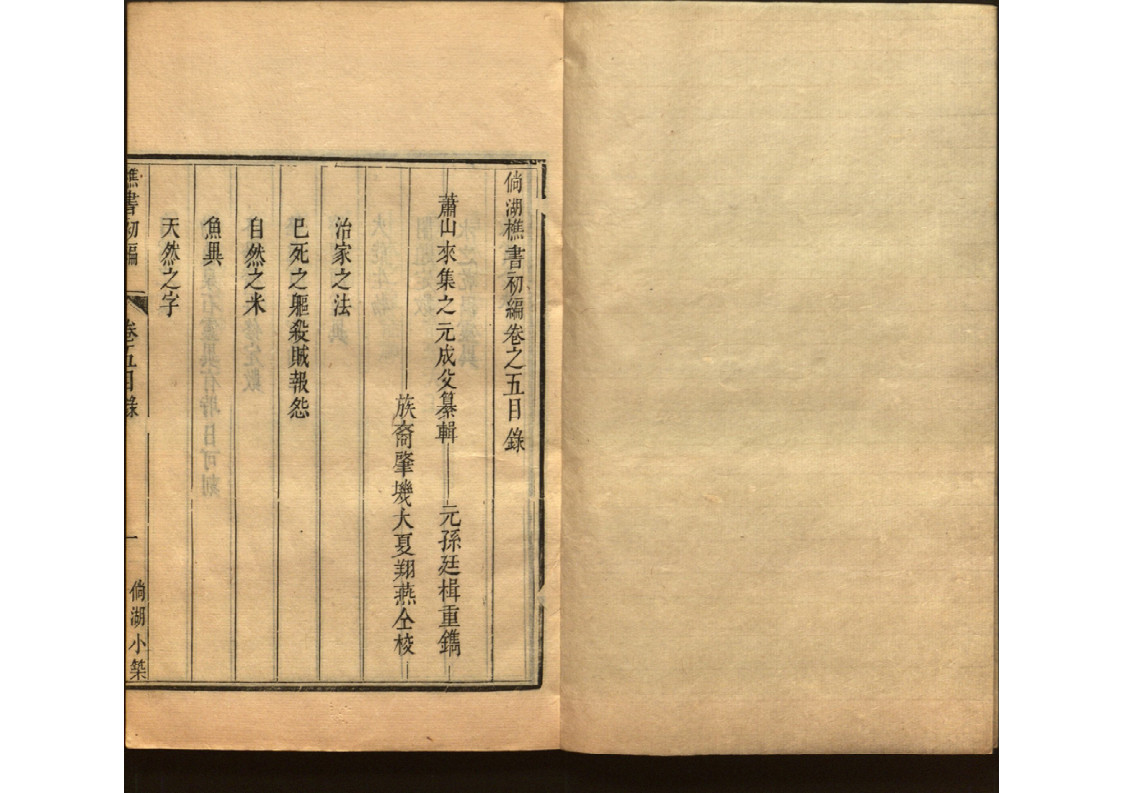 倘湖樵書初編卷之五目錄
蕭山來集之元成父纂輯 元孫廷楫重鐫
族裔肇㙨大夏翔燕仝校
治家之法
巳死之軀殺賊報怨
自然之米
魚異
天然之字
樵書初編 卷五目錄 一 倘湖小築